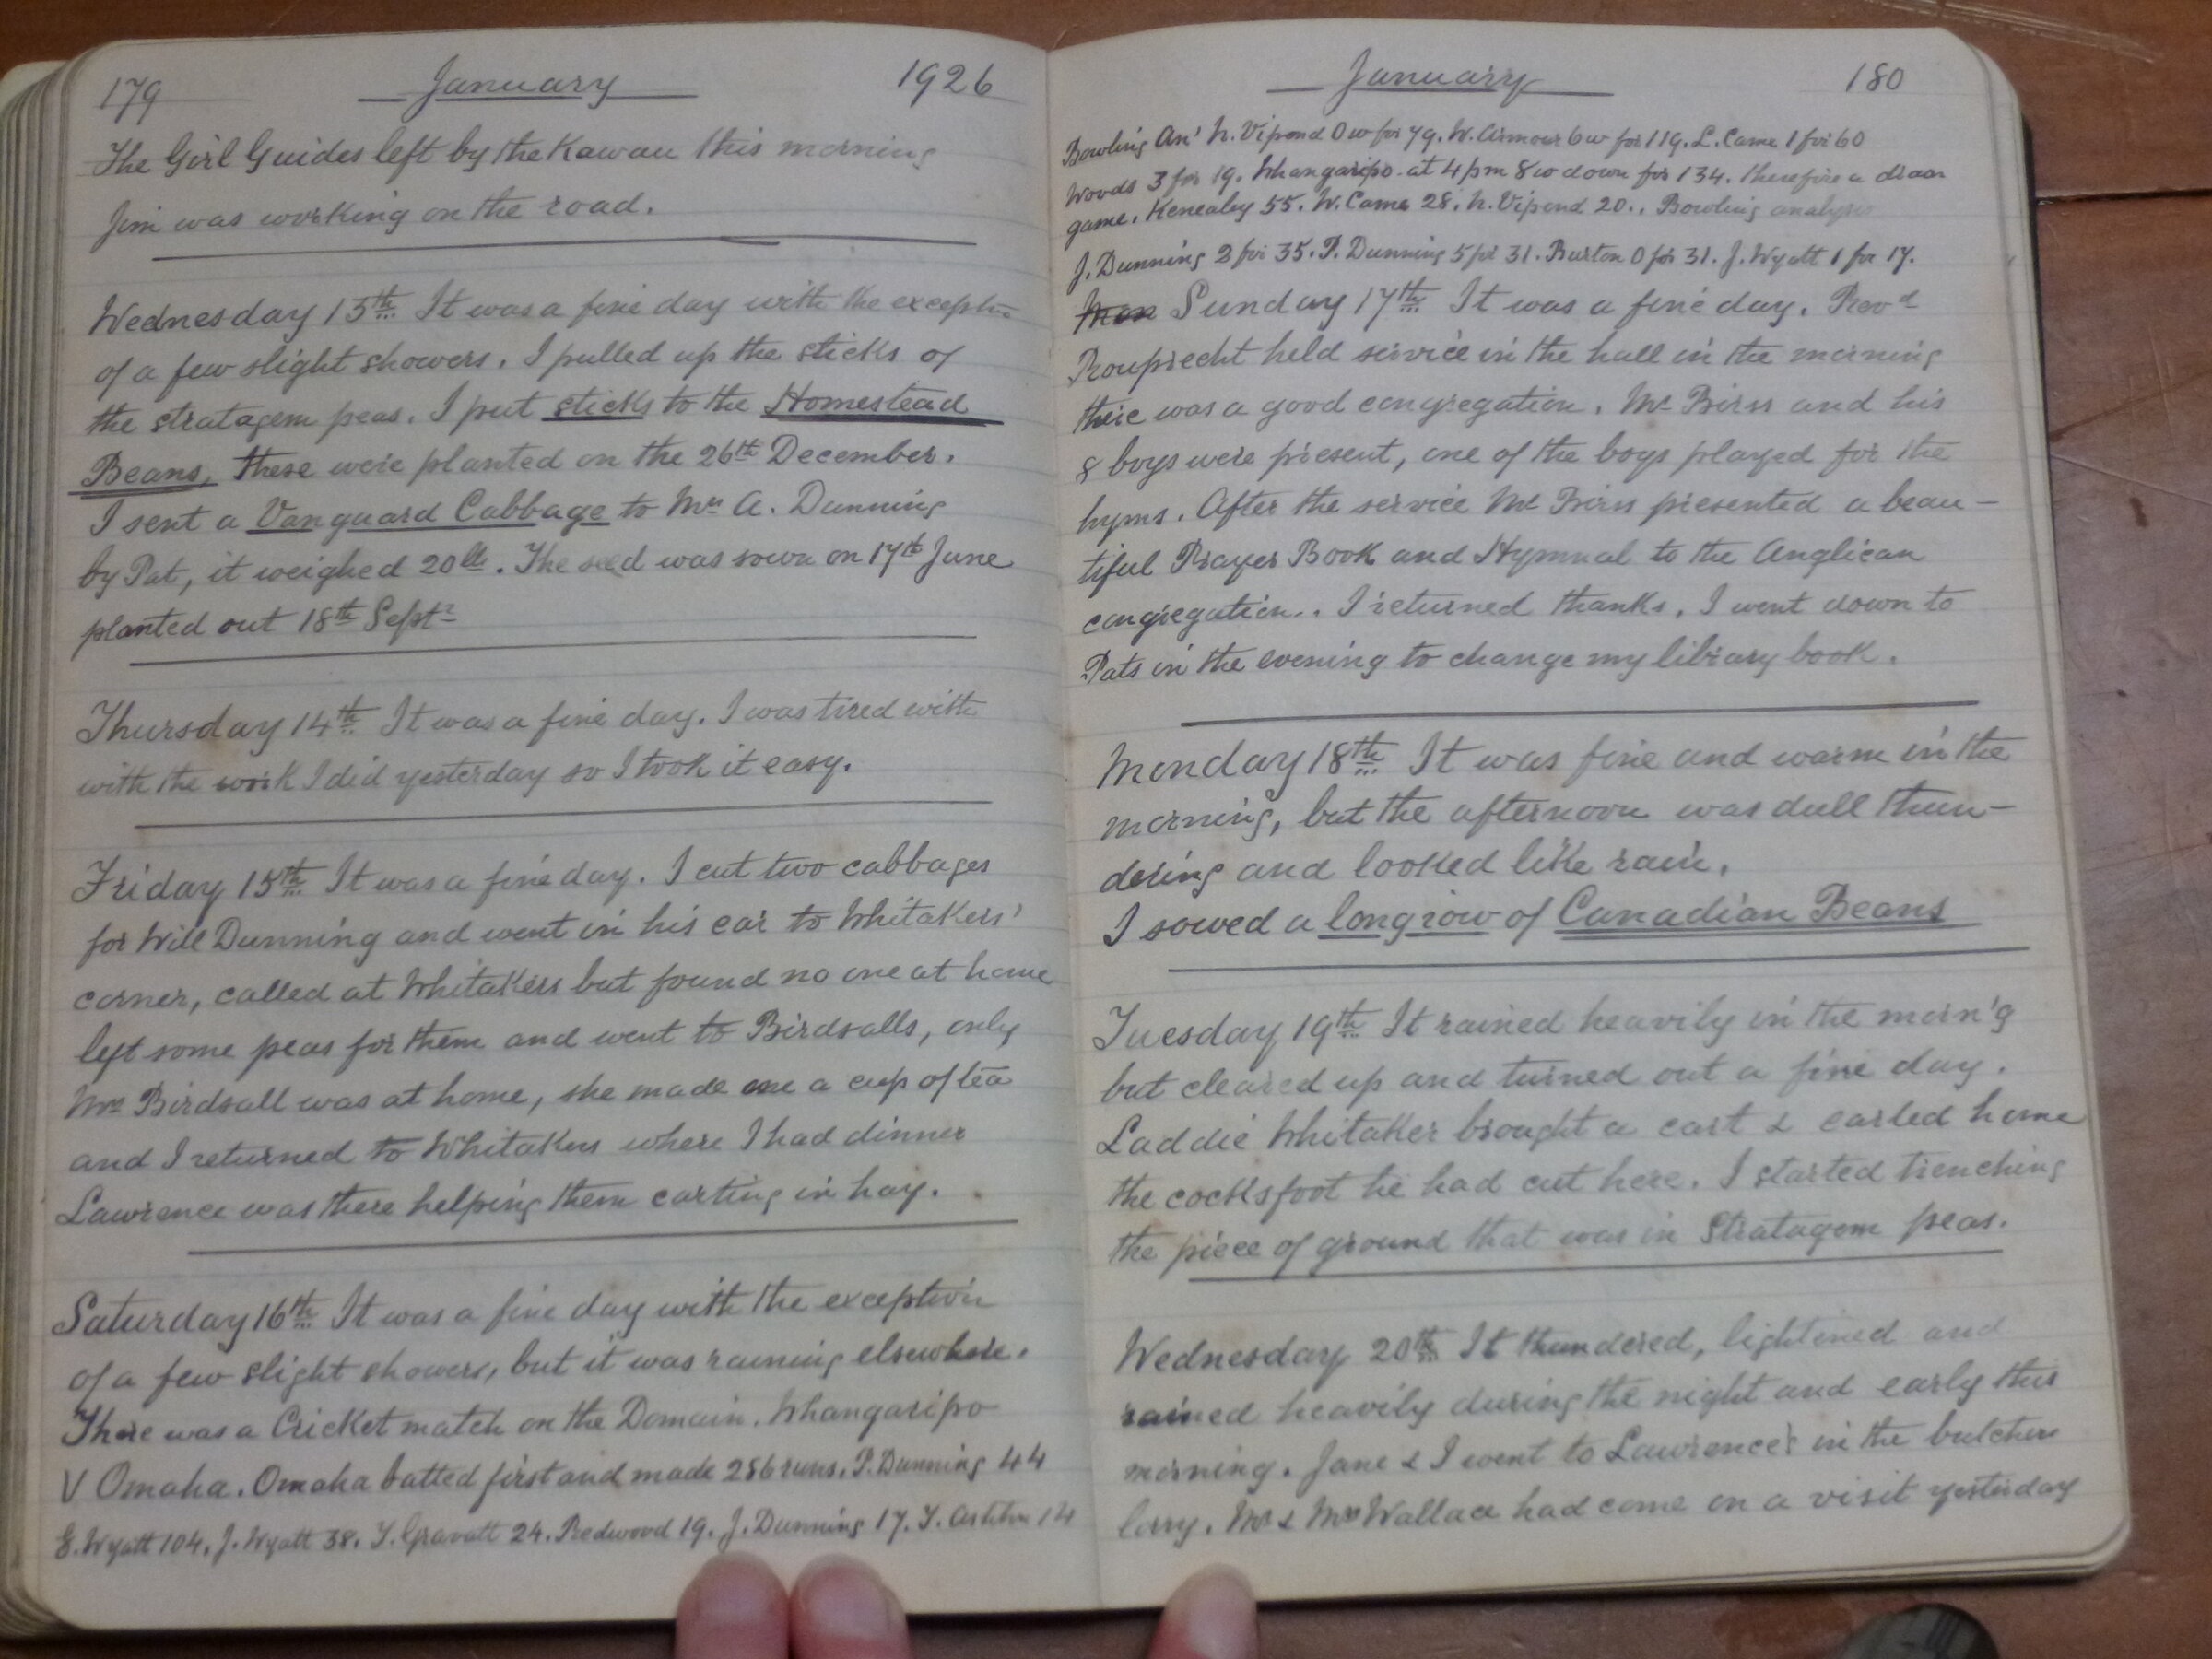 179 January 1926
The Girl Guides left by the Kawau this morning
Jim was working on the road.
Wednesday 13th It was a fine day with the exceptn
of a few slight showers. I pulled up the sticks of
the stratagem peas. I put sticks to the Homestead
Beans, these were planted on the 26th December.
I sent a Vanguard Cabbage to Mrs A. Dunning
by Pat, it weighed 20lb. The seed was sown on 17th June
planted out 18th Septr
Thursday 14th It was a fine day. I was tired with
with the work I did yesterday so I took it easy.
Friday 15th It was a fine day. I cut two cabbages
for Will Dunning and went in his car to Whitakers'
corner, called at Whitakers but found no one at home
left some peas for them and went to Birdsalls, only
Mrs Birdsall was at home, she made me a cup of tea
and I returned to Whitakers where I had dinner
Lawrence was there helping them carting in hay.
Saturday 16th It was a fine day with the exception
of a few slight showers, but it was raining elsewhere.
There was a Cricket match on the Domain. Whangaripo
V Omaha. Omaha batted first and made 286 runs. P. Dunning 44
E. Wyatt 104. J. Wyatt 38. T. Gravatt 24. Redwood 19. J. Dunning 17. T. Ashton 14
January 180
Bowling An' N. Vipond 0 w for 79. W. Armour 6 w for 119. L. Came 1 for 60
Woods 3 for 19. Whangaripo at 4 pm 8 w down for 134. Therefore a drawn
game. Kenealey 55. W. Came 28. N. Vipond 20.. Bowling analysis
J. Dunning 2 for 35. P. Dunning 5 for 31. Burton 0 for 31. J. Wyatt 1 for 17.
Mon Sunday 17th It was a fine day. Revd
Rouprecht held service in the hall in the morning
there was a good congregation. Mr Birss and his
8 boys were present, one of the boys played for the
hyms. After the service Mr Birss presented a beau-
tiful Prayer Book and Hymnal to the Anglican
congregation.. I returned thanks. I went down to
Pats in the evening to change my library book.
Monday 18th It was fine and warm in the
morning, but the afternoon was dull thun-
dering and looked like rain.
I sowed a long row of Canadian Beans
Tuesday 19th It rained heavily in the morn'g
but cleared up and turned out a fine day.
Laddie Whitaker brought a cart & carted home
the cocksfoot he had cut here. I started trenching
the piece of ground that was in Stratagem peas.
Wednesday 20th It thundered, lightened and
rained heavily during the night and early this
morning. Jane & I went to Lawrence's in the butchers
lorry. Mr & Mrs Wallace had come on a visit yesterday